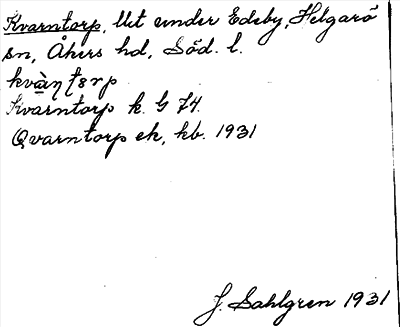 Kvarntorp, llt under Edeby, Helgarö
sn, Åkers hd, Söd. l.
kvàɳʈɵrp
Kvarntorp k. G 74.
Qvarntorp ek, kb. 1931
J. Sahlgren 1931